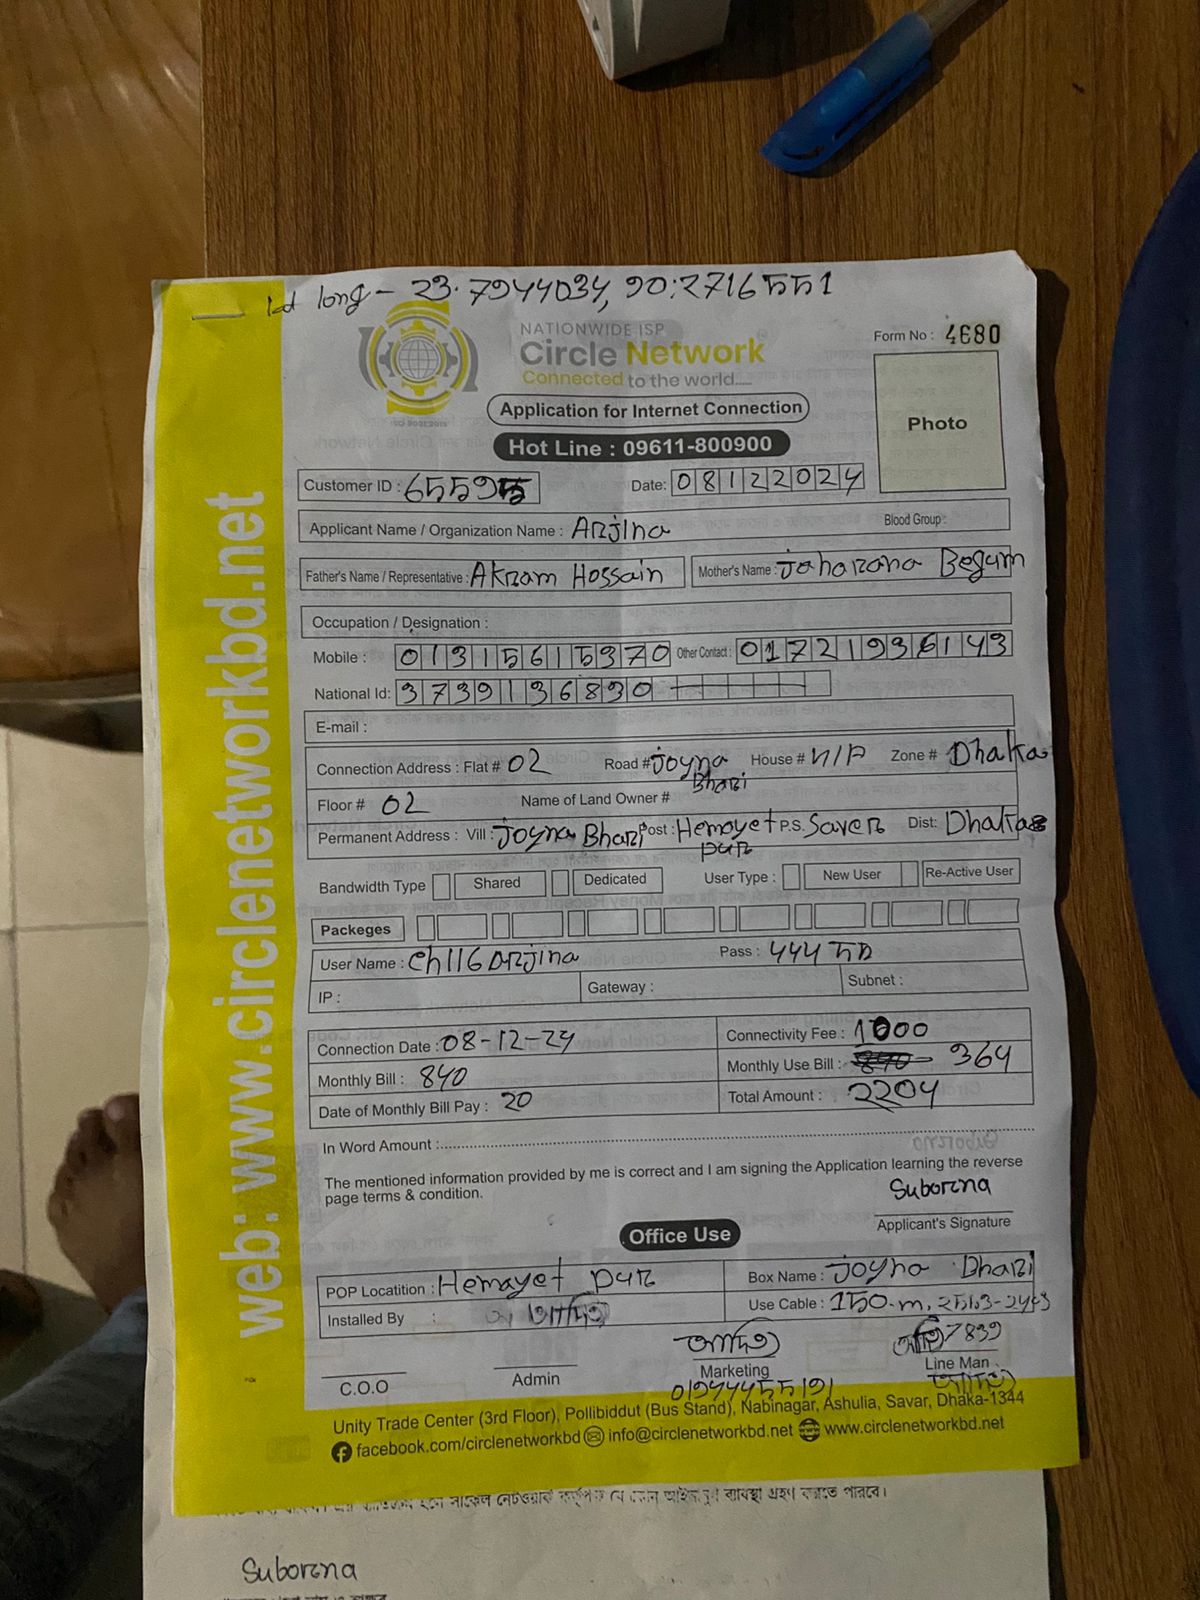 lat long - 23.7944034, 90.2716551
NATIONWIDE ISP
Circle Network
Connected to the world....
ISO 9001:2015
Form No : 4680
Photo
Application for Internet Connection
Hot Line : 09611-800900
Customer ID : 65595 Date: 08122024
Applicant Name / Organization Name : Arjina Blood Group :
Father's Name / Representative : Akram Hossain Mother's Name : Jaharana Begum
Occupation / Designation :
Mobile : 01315615370 Other Contact : 01721936143
National Id: 3739136830
E-mail :
Connection Address : Flat # 02 Road # Joyna Bhari House # N/A Zone # Dhaka
Floor # 02 Name of Land Owner #
Permanent Address : Vill : Joyna Bhari Post : Hemayet pur P.S. Saver Dist: Dhaka
Bandwidth Type Shared Dedicated User Type : New User Re-Active User
Packeges
User Name : Ch116arjina Pass : 444
IP : Gateway : Subnet :
Connection Date : 08-12-24 Connectivity Fee : 1000
Monthly Bill : 840 Monthly Use Bill : 840 364
Date of Monthly Bill Pay : 20 Total Amount : 2204
In Word Amount :
The mentioned information provided by me is correct and I am signing the Application learning the reverse
page terms & condition.
Suborna
Applicant's Signature
Office Use
POP Locatition : Hemayet pur Box Name : Joyna Bhari
Installed By : Use Cable : 150.m,
7839
C.O.O Admin Marketing Line Man
Unity Trade Center (3rd Floor), Pollibiddut (Bus Stand), Nabinagar, Ashulia, Savar, Dhaka-1344
facebook.com/circlenetworkbd info@circlenetworkbd.net www.circlenetworkbd.net
web: www.circlenetworkbd.net
ব্যবস্থা গ্রহণ করতে পারবে।
Suborna